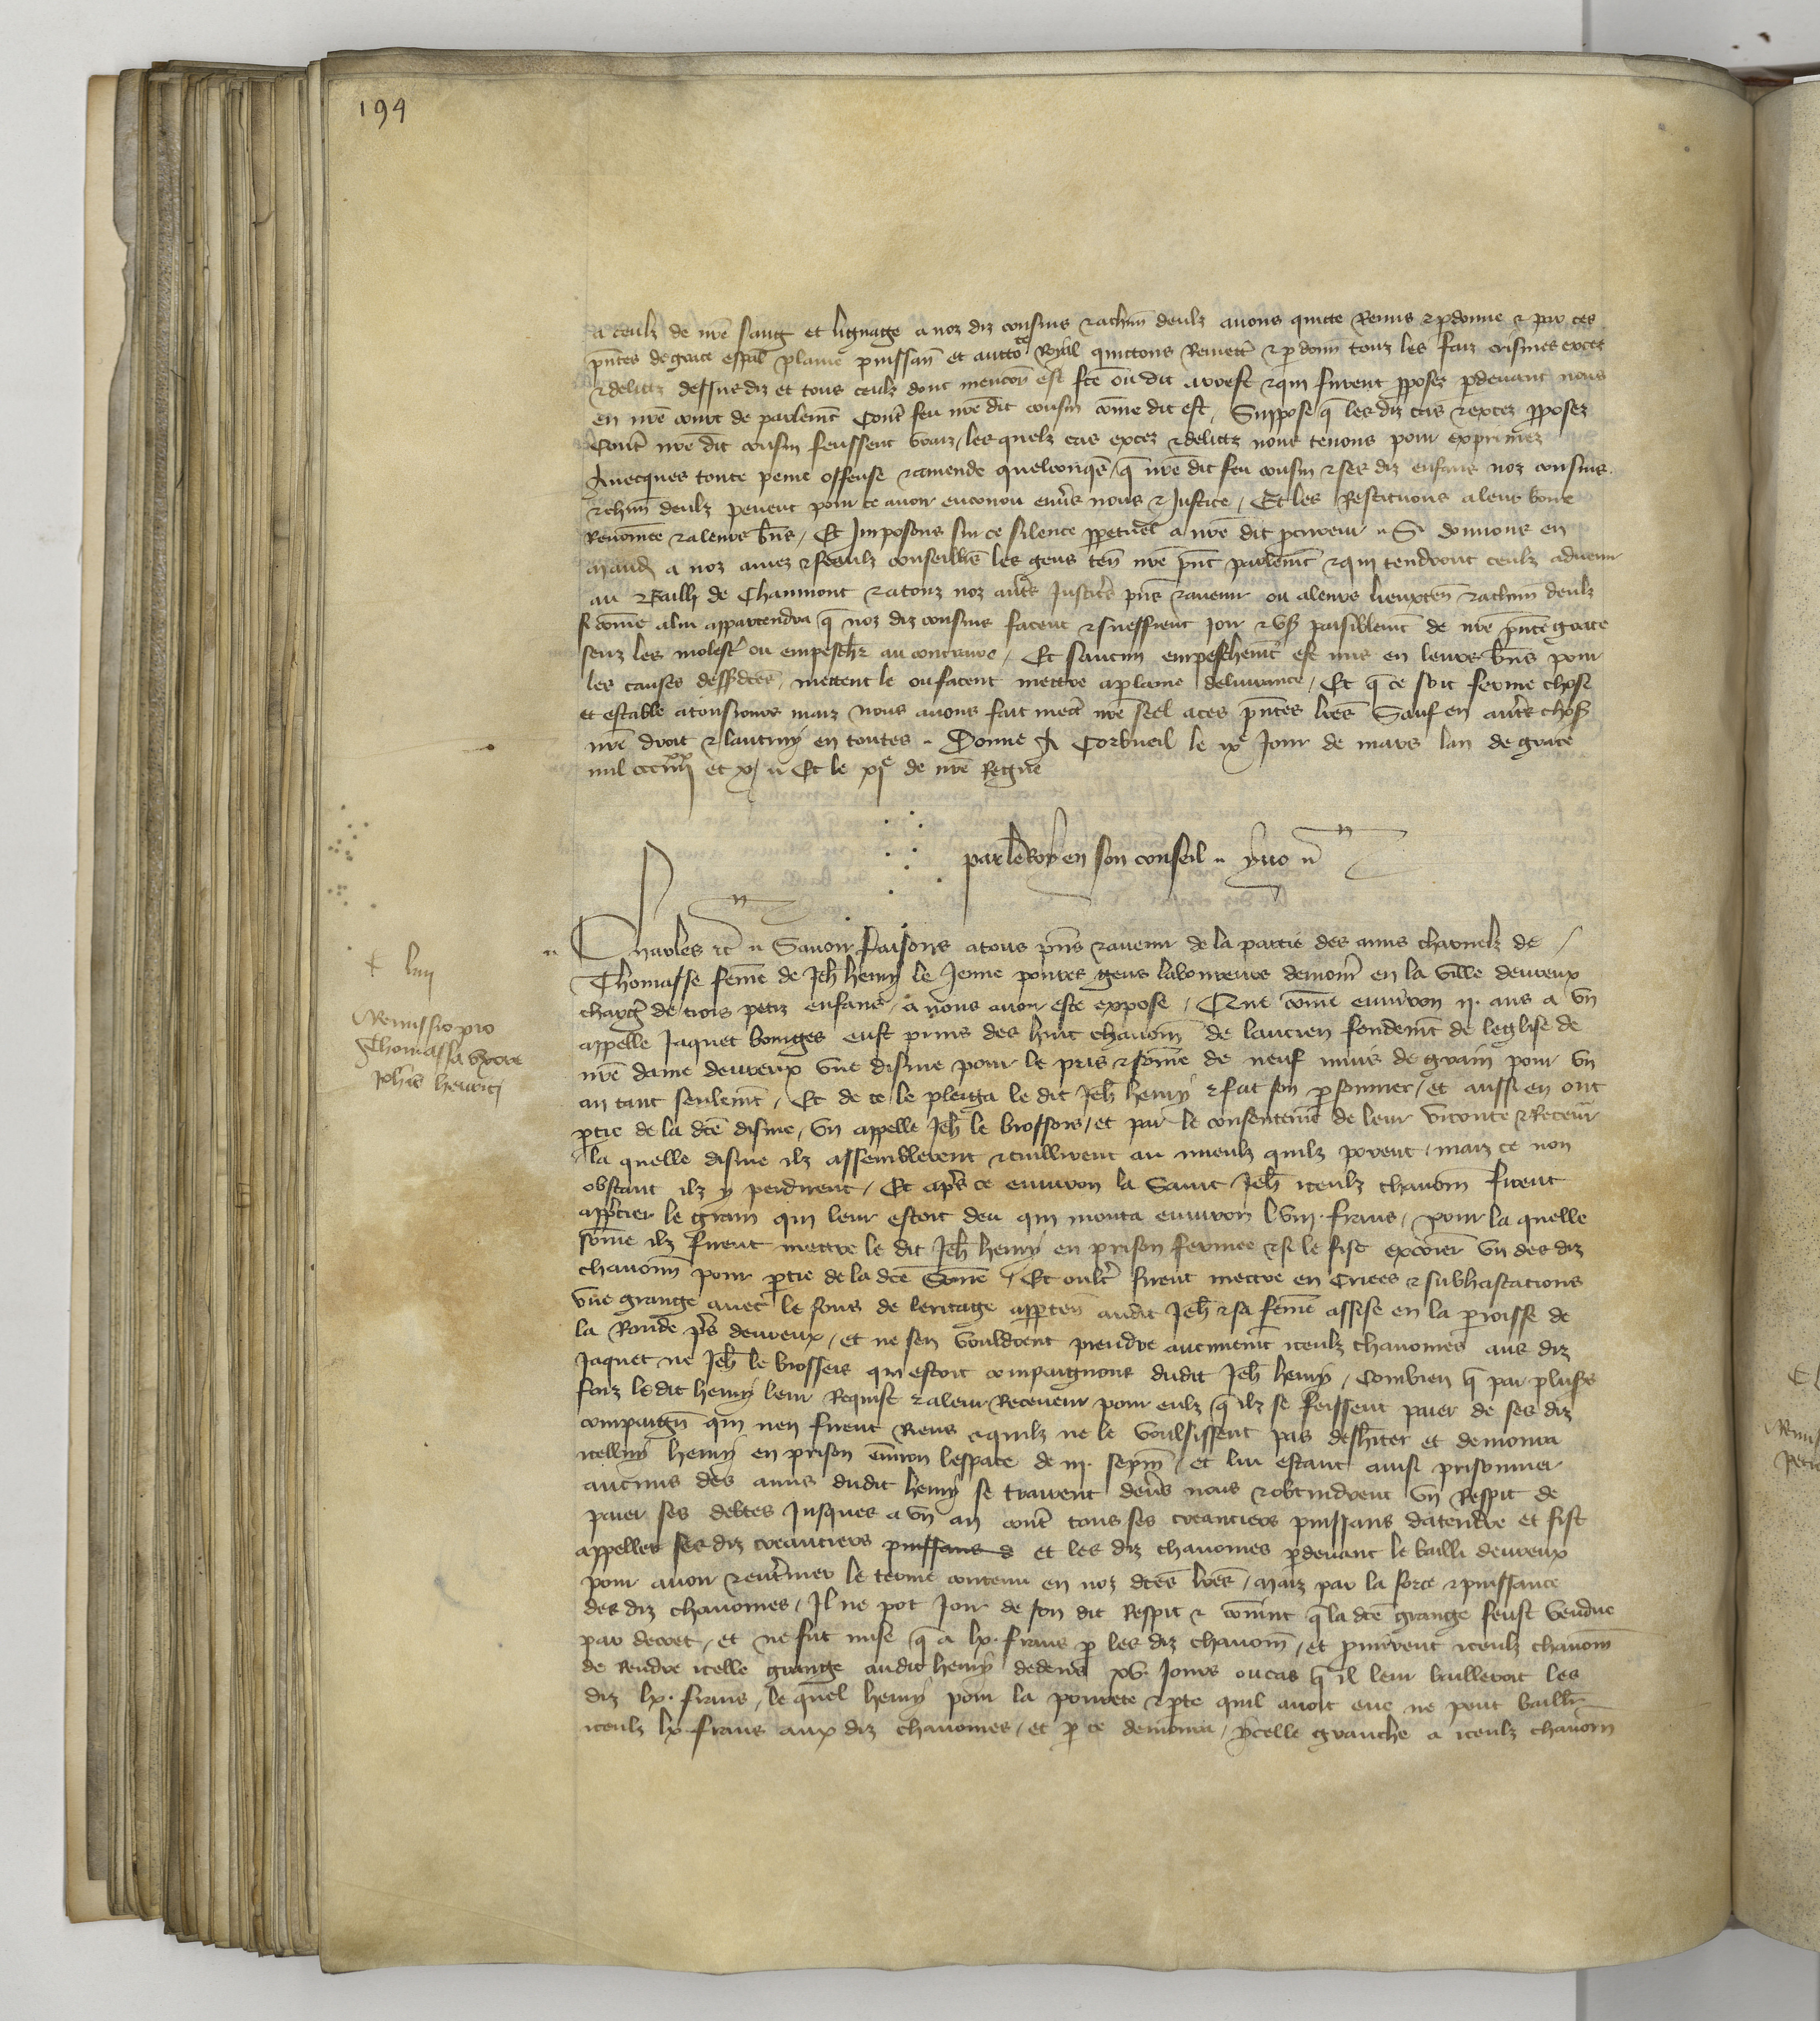 194
a ceulz de nre sang et lignage a noz diz cousins & achun deulz avons quicte Remis & pdonne & par ces
pntes de grace espal plaine puissan et auctorite Royal quictons Remett & pdonn touz les faiz crismes exces
& delictz dessusdiz et tous ceulz dont mencon est fce ou dit arrest & qui furent pposez pdevant nous
en nre court de parlemt Cont feu nre dit cousin come dit est, Suppose q les diz cas & excez pposez
Cont nre dit cousin feussent vraiz, les quelz cas excez & delictz nous tenons pour exprimez
Avecques toute peine offense & amende quelconqs, q nre dit feu cousin & ses diz enfans noz cousins
& chun deulz pevent pour ce avoir encoru envs nous & Justice, Et les Restituons a leur bone
Renomee & a leurs bns, Et Imposons sur ce silence ppetuel a nre dit pcureur Si donnons en
mand a noz amez & feaulz conseillrs les gens ten nre pnt parlemt & qui tendront ceulz advenir
au Bailli de Chaumont & a touz noz autrs Justicrs pns & avenir ou a leurs lieuxten & achun deulz
si come a lui appartendra q noz diz cousins facent & sueffrent Joir & us paisiblemt de nre pnte grace
senz les molest ou empeschr au contraire, Et saucun empeschemt est mis en leurs bns pour
les causes dessdces, mettent le ou facent mettre a plaine delivrance, Et q ce soit ferme chose
et estable a tousiours maiz nous avons fait mect nre seel a ces pntes lres Sauf en autrs chos
nre droit & lautruy en toutes. Donne A Corbueil le ixe Jour de mars lan de grace
mil ccciiiixx et xj Et le xje de nre Regne
par le Roy en son conseil yvo
Charles etc Savoir faisons a tous pns & avenir de la partie des amis charnelz de
Thomasse feme de Jeh henry le Jeune povres gens laboureurs demour en la ville devreux
charg de trois petiz enfans, a nous avoir este expose, Que come environ ij. ans a un
appelle Jaquet bourges eust prins des huit chanoin de lancien fondemt de leglise de
nre dame devreux une disme pour le pris & some de neuf muis de grain pour un
an tant seulemt, Et de ce le pleiga le dit Jeh henry & fut son psonnier, et aussi en ont
ptie de la dce disme, un appelle Jeh le brossois, et par le consenteme de leur viconte & Receur
la quelle disme ilz assemblerent & cuillirent au mieulz quilz porent, maiz ce non
obstant ilz y perdirent, Et aprs ce environ la Saint Jeh iceulz chanoin firent
apprcier le grain qui leur estoit deu qui monta environ lviij. frans, pour la quelle
some ilz firent mettre le dit Jeh henry en prison fermee & si le fist excoier un des diz
chanoin pour ptie de la dce Some, Et oultr firent mettre en Criees & subhastations
une grange avec le fons de leritage apparten audit Jeh & sa feme assise en la proisse de
la Ronde prs devreux, et ne sen vouldrent prendre aucunemt iceulz chanoines aus diz
Jaquet ne Jeh le brosseis qui estoit compaignons dudit Jeh henry, Combien q par plus
foiz le dit henry leur Requist & a leur Receveur pour eulz q ilz se feissent paier de ses diz
compaign qui nen firent Riens & quilz ne le voulsissent pas deshriter et demoura
icelluy henry en prison environ lespace de iij. sepm, et lui estant ainsi prisonnier
aucuns des amis dudit henry se trairent devs nous & obtindrent un Respit de
paier ses debtes Jusques a un an cont tous ses creanciers puissans datendre et fist
appeller ses diz creanciers puissans d et les diz chanoines pdevant le bailli devreux
pour avoir & entrmer le terme contenu en noz dces lres, maiz par la force & puissance
des diz chanoines, Il ne pot Joir de son dit Respit & convint q la dce grange feust vendue
par decret, et ne fut mise q a lx. frans p les diz chanoin, et pmirent iceulz chanoin
de Rendre icelle grange audit henry dedens xv. Jours ou cas q il leur bailleroit les
diz lx. frans, le quel henry pour la povrete & pte quil avoit eue ne pout baillr
iceulz lx. frans aux diz chanoines, et p ce demoura, ycelle granche a iceulz chanoin
Remissio pro
Thomassa uxore
Johis henrici